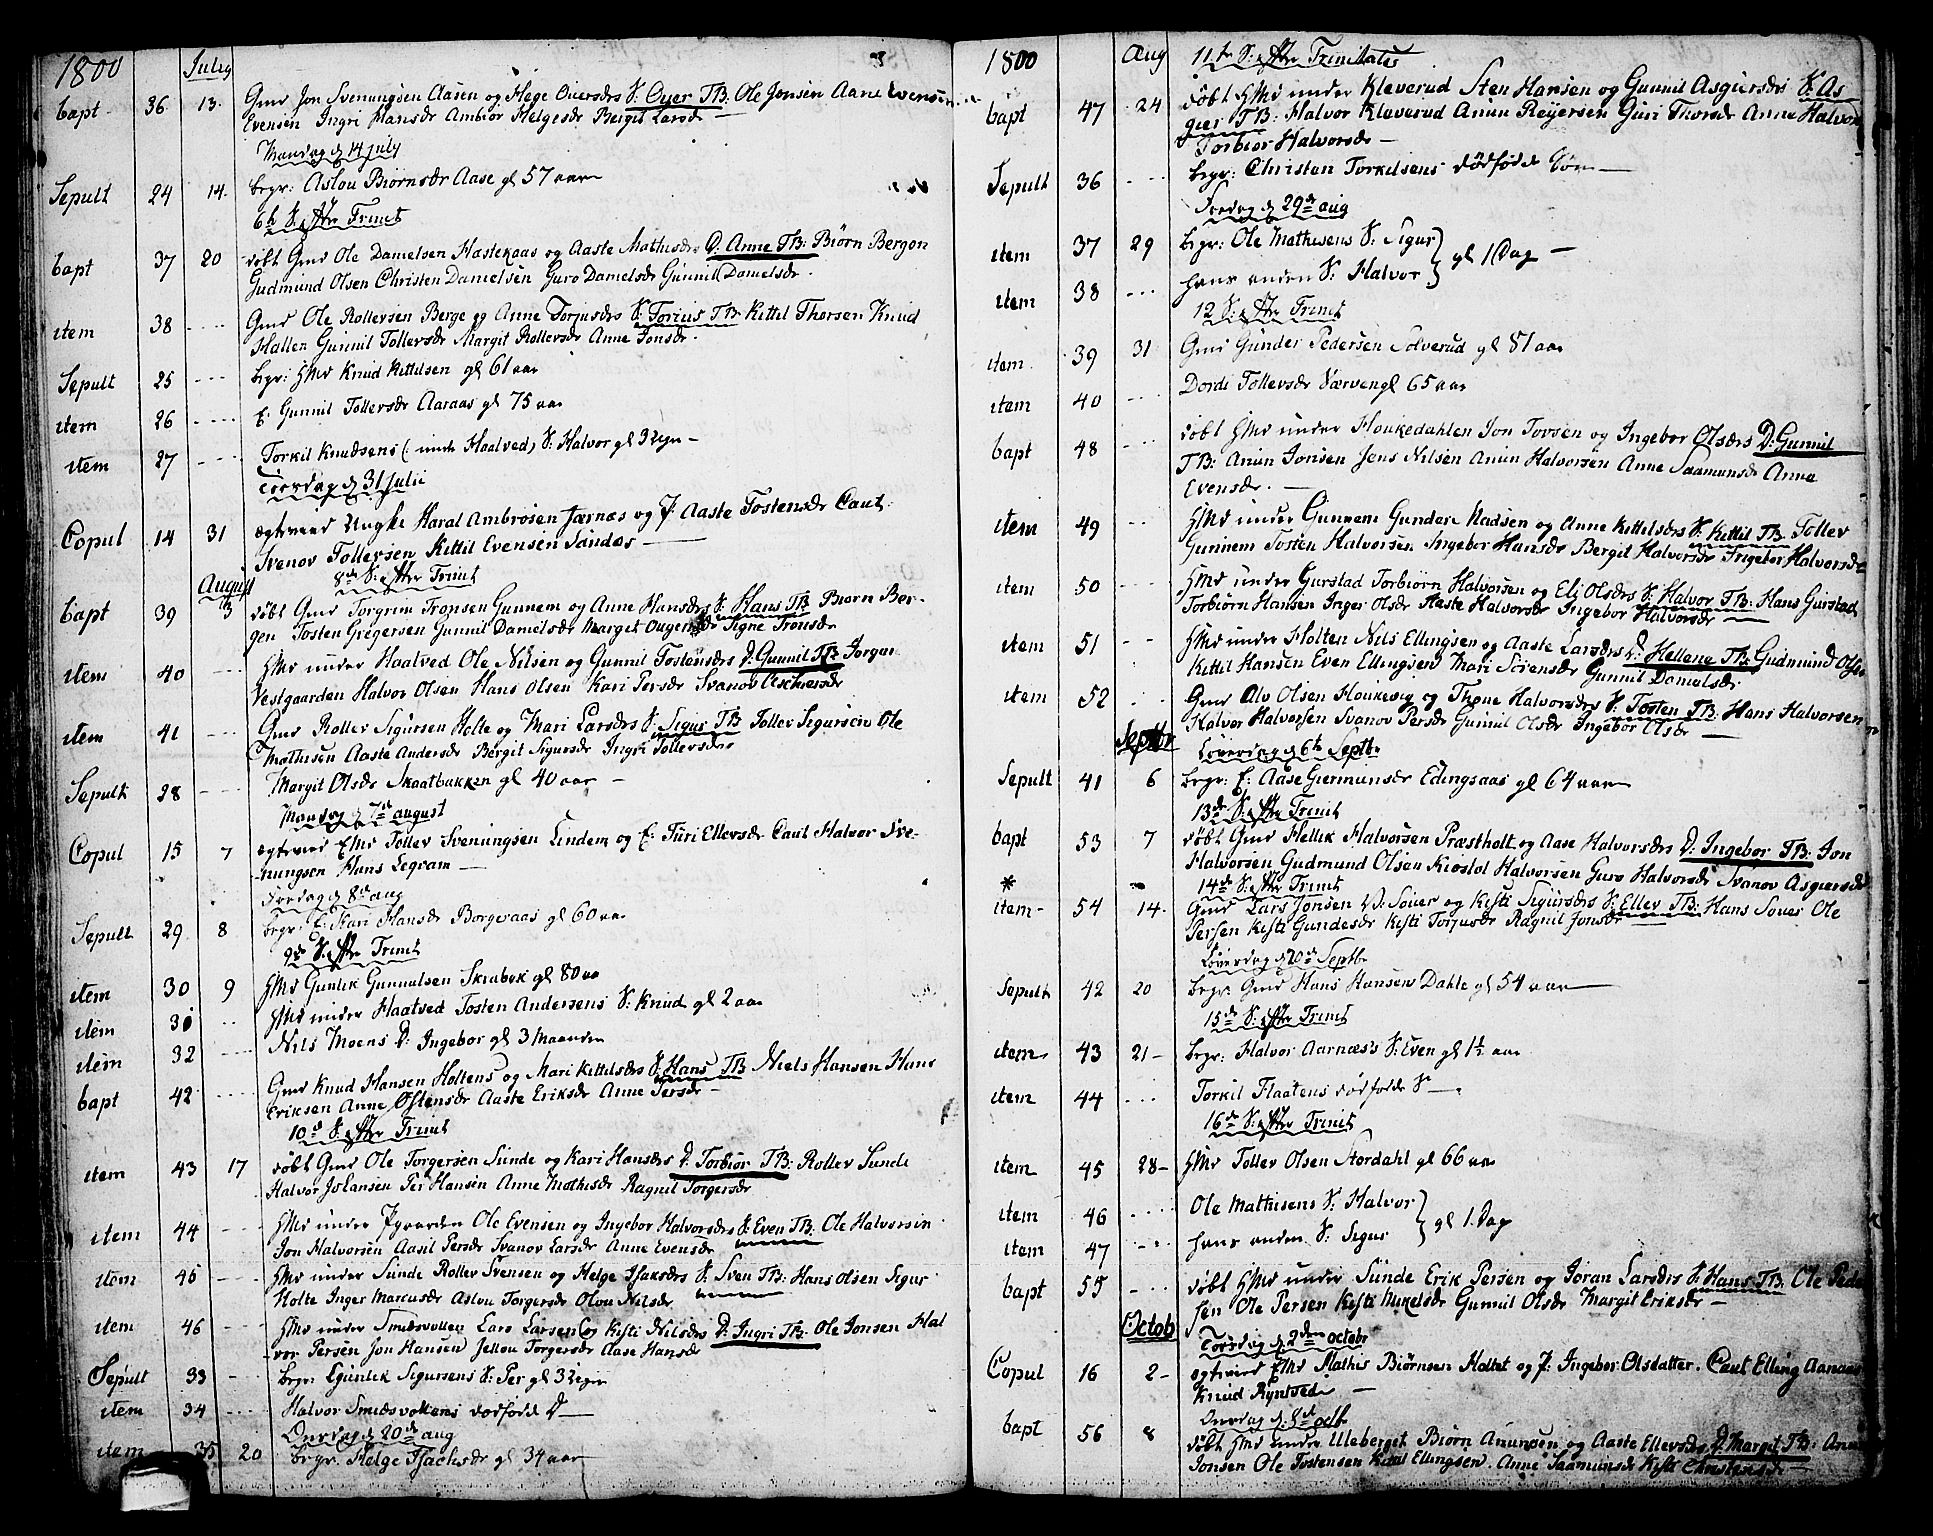 1800 July
bapt 36 13. Gmd Jon Svenungsen Aasen og Hege Oversdr S: Over TB: Ole Jonsen Aane Evensen
Evensen Ingri Hansdr Ambior Helgesdr Bergit Larsdr
Mandag d 14 july
Sepult 24 14. begr: Aslou Biørnsdr Aase gl 57 aar
6te S: efter Trinit
bapt 37 20 døbt Gmd Ole Danielsen Hastekaas og Aaste Mathisdr D. Anne TB: Biørn Bergon
Gudmund Olsen Christen Danielsen Guro Danielsdr Gunnil Danielsdr.
item 38 Gmd Ole Rollefsen Berge og Anne Torjusdr S: Torius TB: Kittil Thorsen Knud
Hallen Gunnil Tollevsdr Margit Rollevsdr Anne Jonsdr.
Sepult 25 begr: HMd Knud Kittilsen gl 61 aar
item 26 E: Gunnil Tollevsdr Aaraas gl 75 aar
item 27 Torkil Knudsens (: under Haatved) S: Halvor gl 3 Uger
Torsdag d 31 Julii
Copul 14 31 egteviet Ungke Haral Ambrosen Jærnæs og P: Aaste Tostensdr Caut:
Svenov Tollevsen Kittil Evensen Sandaas
August 8de S: efter Trinit
bapt 39 3 døbt Gmd Torgrim Tronsen Gunnem og Anne Hansdr S: Hans TB: Biørn Ber-
gen Tosten Gregersen Gunnil Danielsdr Marget Tronsdr Signe Tronsdr
item 40 HMd under Haatved Ole Nilsen og Gunnil Tostensdr D: Gunnil TB: Jorgen
Vestgaarden Halvor Olsen Hans Olsen Kari Persdr Svanov
item 41 Gmd Rollev Sigursen Holte og Mari Larsdr S: Sigur TB: Tollev Sigursen Ole
Mathisen Aaste Andersdr Bergit Sigursdr Ingri Tollevsdr
Sepult 28 Margit Olsdr Skaatbakken gl 40 aar
Mandag d 7de august
Copul 15 7 egteviet EMd Tollev Svenungsen Lindem og E: Turi Ellevsdr Caut Halvor Sve-
nungsen Hans Legram
Fredag d 8de aug
Sepult 29 8 begr: E: Kari Hansdr Borgeraas gl 60 aar
9de S: efter Trinit
item 30 9 HMd Gunlek Gunnulsen Skrabek gl 80 aar
item 31 HMd under Haatved Tosten Andersens S: Knud gl 2 aar
item 32 Nils Moens D: Ingebor gl 3 Maaneder
bapt 42 Gmd Knud Hansen Holtens og Mari Kittilsdr S: Hans TB: Niels Hansen Hans
Eriksen Anne Østensdr Aaste Eriksdr Anne Persdr
10de S: efter Trinit
item 43 17 døbt Gmd Ole Torgersen Sunde og Kari Hansdr D: Torbior TB: Rollev Sunde
Halvor Per Hansen Anne Mathisdr Ragnil Torgersdr
item 44 HMd under Ole Evensen og Ingebor Halvorsdr S: Even TB: Ole Halvorsen
Jon Halvorsen Aasil Persdr Svanov Larsdr Anne Evensdr
item 45 HMd under Sunde Rollev Svensen og Helge Isaksdr S: Sven TB: Hans Olsen Sigur
Holte Inger Marcusdr Aslou Torgersdr Olou Nilsdr
item 46 HMd under Smedsvollen Lars Larsen og Kisti Nilsdr D: Ingri TB: Ole Jonsen Hal
vor Persen Jon Hansen Torgersdr Aase Hansdr
Sepult 33 begr. Gunlek Sigursens S: Per gl 3 Uger
item 34 Halvor Smedsvollens dødfødde D
Onsdag d 20de aug
item 35 20 begr. Helge Isachsdr gl 34 aar
1800 Aug 11te S: efter Trinitates
bapt 47 24 døbt HMd under Kleverud Sten Hansen og Gunnil Asgiersdr S: As-
gier TB: Halvor Kleverud Anun Reyersen Guri Thorsdr Anne Halvor
Torbior Halvorsdr
Sepult 36 begr: Christen Torkelsens dødfødde Søn
Fredag d 29de aug
item 37 29 begr: Ole Mathisens S: Sigur } gl 1 Dag
item 38 hans anden S: Halvor
12 S: efter Trinit
item. 39 31 Gmd Gunder Pedersen Solverud gl 81 aar
item 40 Dordi Tollevsdr Værven gl 65 aar
bapt 48 døbt HMd under Houkedahlen Jon Tovsen og Ingebor Olsdr D: Gunnil
TB: Anun Jonsen Jens Nilsen Anun Halvorsen Anne Saamundr Anne
Evensdr.
item 49 HMd under Gunnem Gunder Madsen og Anne Kittilsdr S: Kittil TB: Tollev
Gunnem Tosten Halvorsen Ingebor Hansdr Bergit Halvorsdr Ingebor Halvorsdr
item 50 HMd under Gurstad Torbiørn Halvorsen og Eli Olsdr S: Halvor TB: Hans Gurstad
Torbiørn Hansen Inger Olsdr Aaste Halvorsdr Ingebor Halvorsdr
item 51 HMd under Holten Nils Ellingsen og Aaste Larsdr D: Hellene TB: Gudmund Olsen
Kittil Hansen Even Ellingsen Mari Sørensdr Gunnil Danielsdr
item 52 Gmd Alv Olsen Houkevig og Thone Halvorsdr S: Tosten TB: Hans Halvorsen
Halvor Halvorsen Svanov Persdr Gunnil Olsdr Ingebor Olsdr
Septbr Løverdag d 6te Septbr
Sepult 41 6 begr: E: Aase Giermunsdr Edingsaas gl 64 aar
13de S: efter Trinit
bapt 53 7 døbt Gmd Hellik Halvorsen Præstholt og Aase Halvorsdr D: Ingebor TB: Jon
Halvorsen Gudmund Olsen Kiøstol Halvorsen Guro Halvorsdr Svanov Asgiersdr
14de S: efter Trinit
* item 54 14. Gmd Lars Jonsen V: Sover og Kisti Sigursdr S: Ellev TB: Hans Sover Ole
Persen Kisti Gundesdr Kisti Torjusdr Ragnil Jonsdr
Løverdag d 20de Septbr
Sepult 42 20 begr: Gmd Hans Hansen Dahle gl 54 aar
15de S: efter Trinit
item 43 21 begr: Halvor Aarnæs's S: Even gl 1½ aar
item 44 Torkil Flaatens dødfødde S
16de S: efter Trinit
item 45 28 HMd Tollev Olsen Stordahl gl 66 aar
item 46 Ole Mathisens S: Halvor } gl 1. Dag
item 47 hans anden S: Sigur
bapt 55 døbt HMd under Sunde Erik Persen og Joran Larsdr S: Hans TB: Ole Peder
sen Ole Persen Kisti Mikelsdr Gunnil Olsdr Margit Eriksdr
Octob Torsdag d 2den octobr
Copul 16 2 egteviet EMd Mathis Biørnsen Holtet og P: Ingebor Olsdatter. Caut Elling Aanaas
Knud
Onsdag d. 8de octb
bapt 56 8 døbt HMd under Ulleberget Biørn Anunsen og Aaste Ellevsdr D: Marget TB: Anun
Jonsen Ole Tostensen Kittil Ellingsen. Anne Saamunsdr Kisti Christensdr